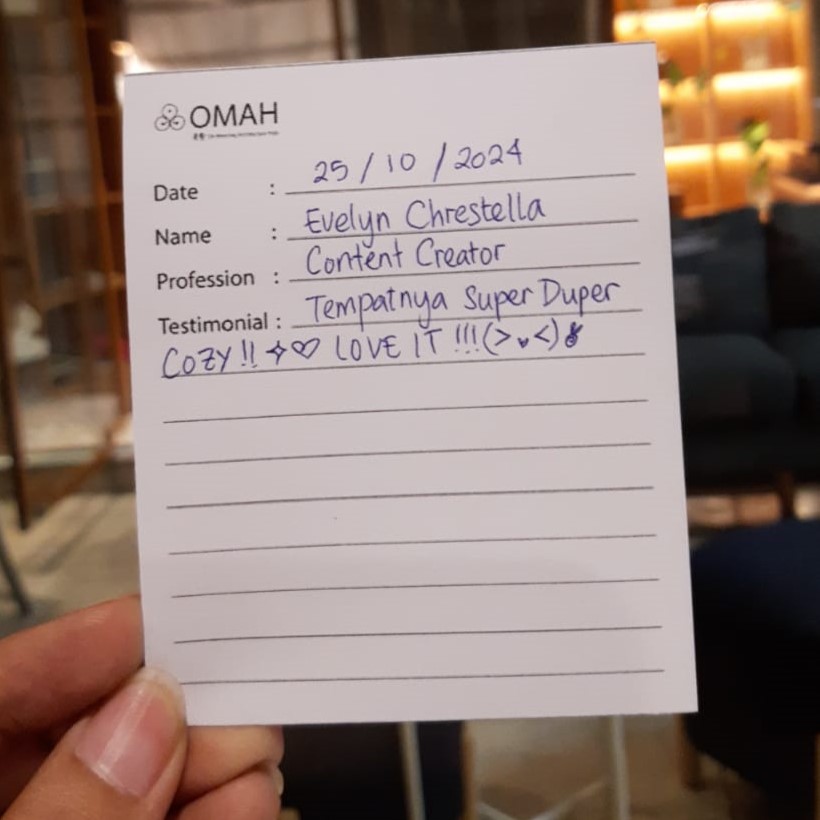 OMAH
Date : 25 / 10 / 2024
Name : Evelyn Chrestella
Profession : Content Creator
Testimonial : Tempatnya Super Duper
COZY !! ✧♡ LOVE IT !!! (>ᴗ<)